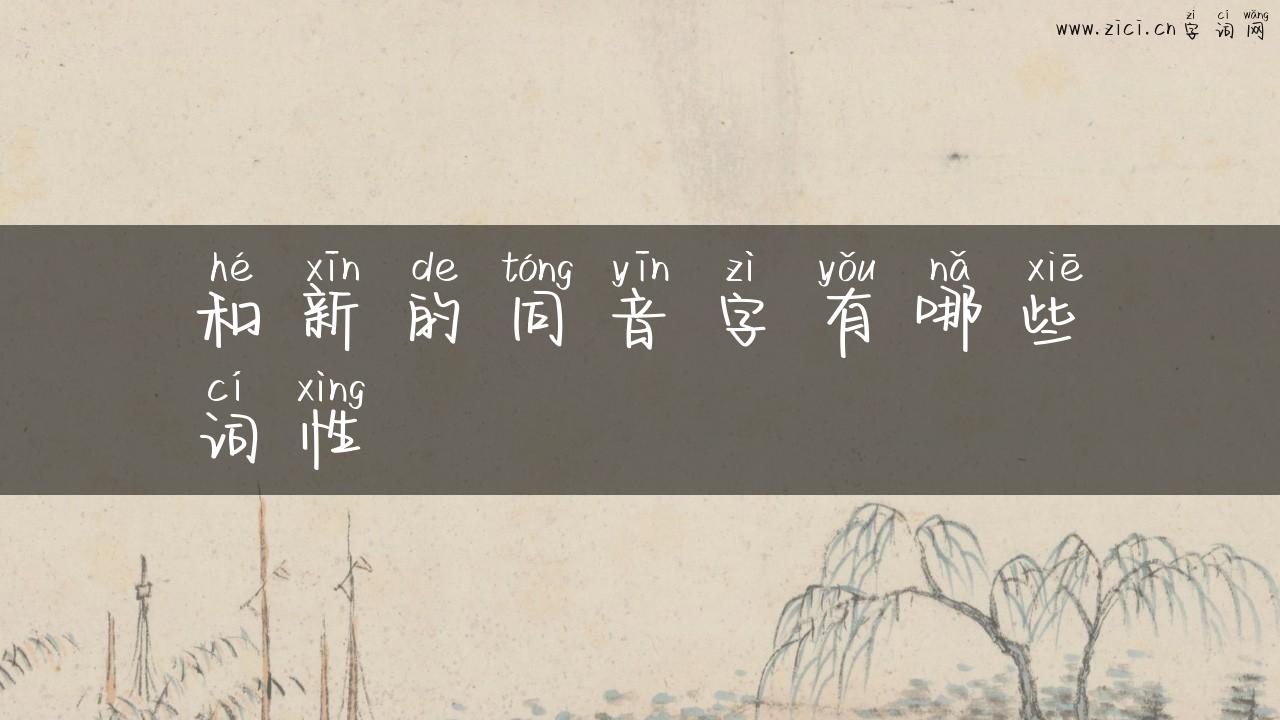 zì cí wǎng
www.zici.cn 字词网
hé xīn de tóng yīn zì yǒu nǎ xiē
和新的同音字有哪些
cí xìng
词性